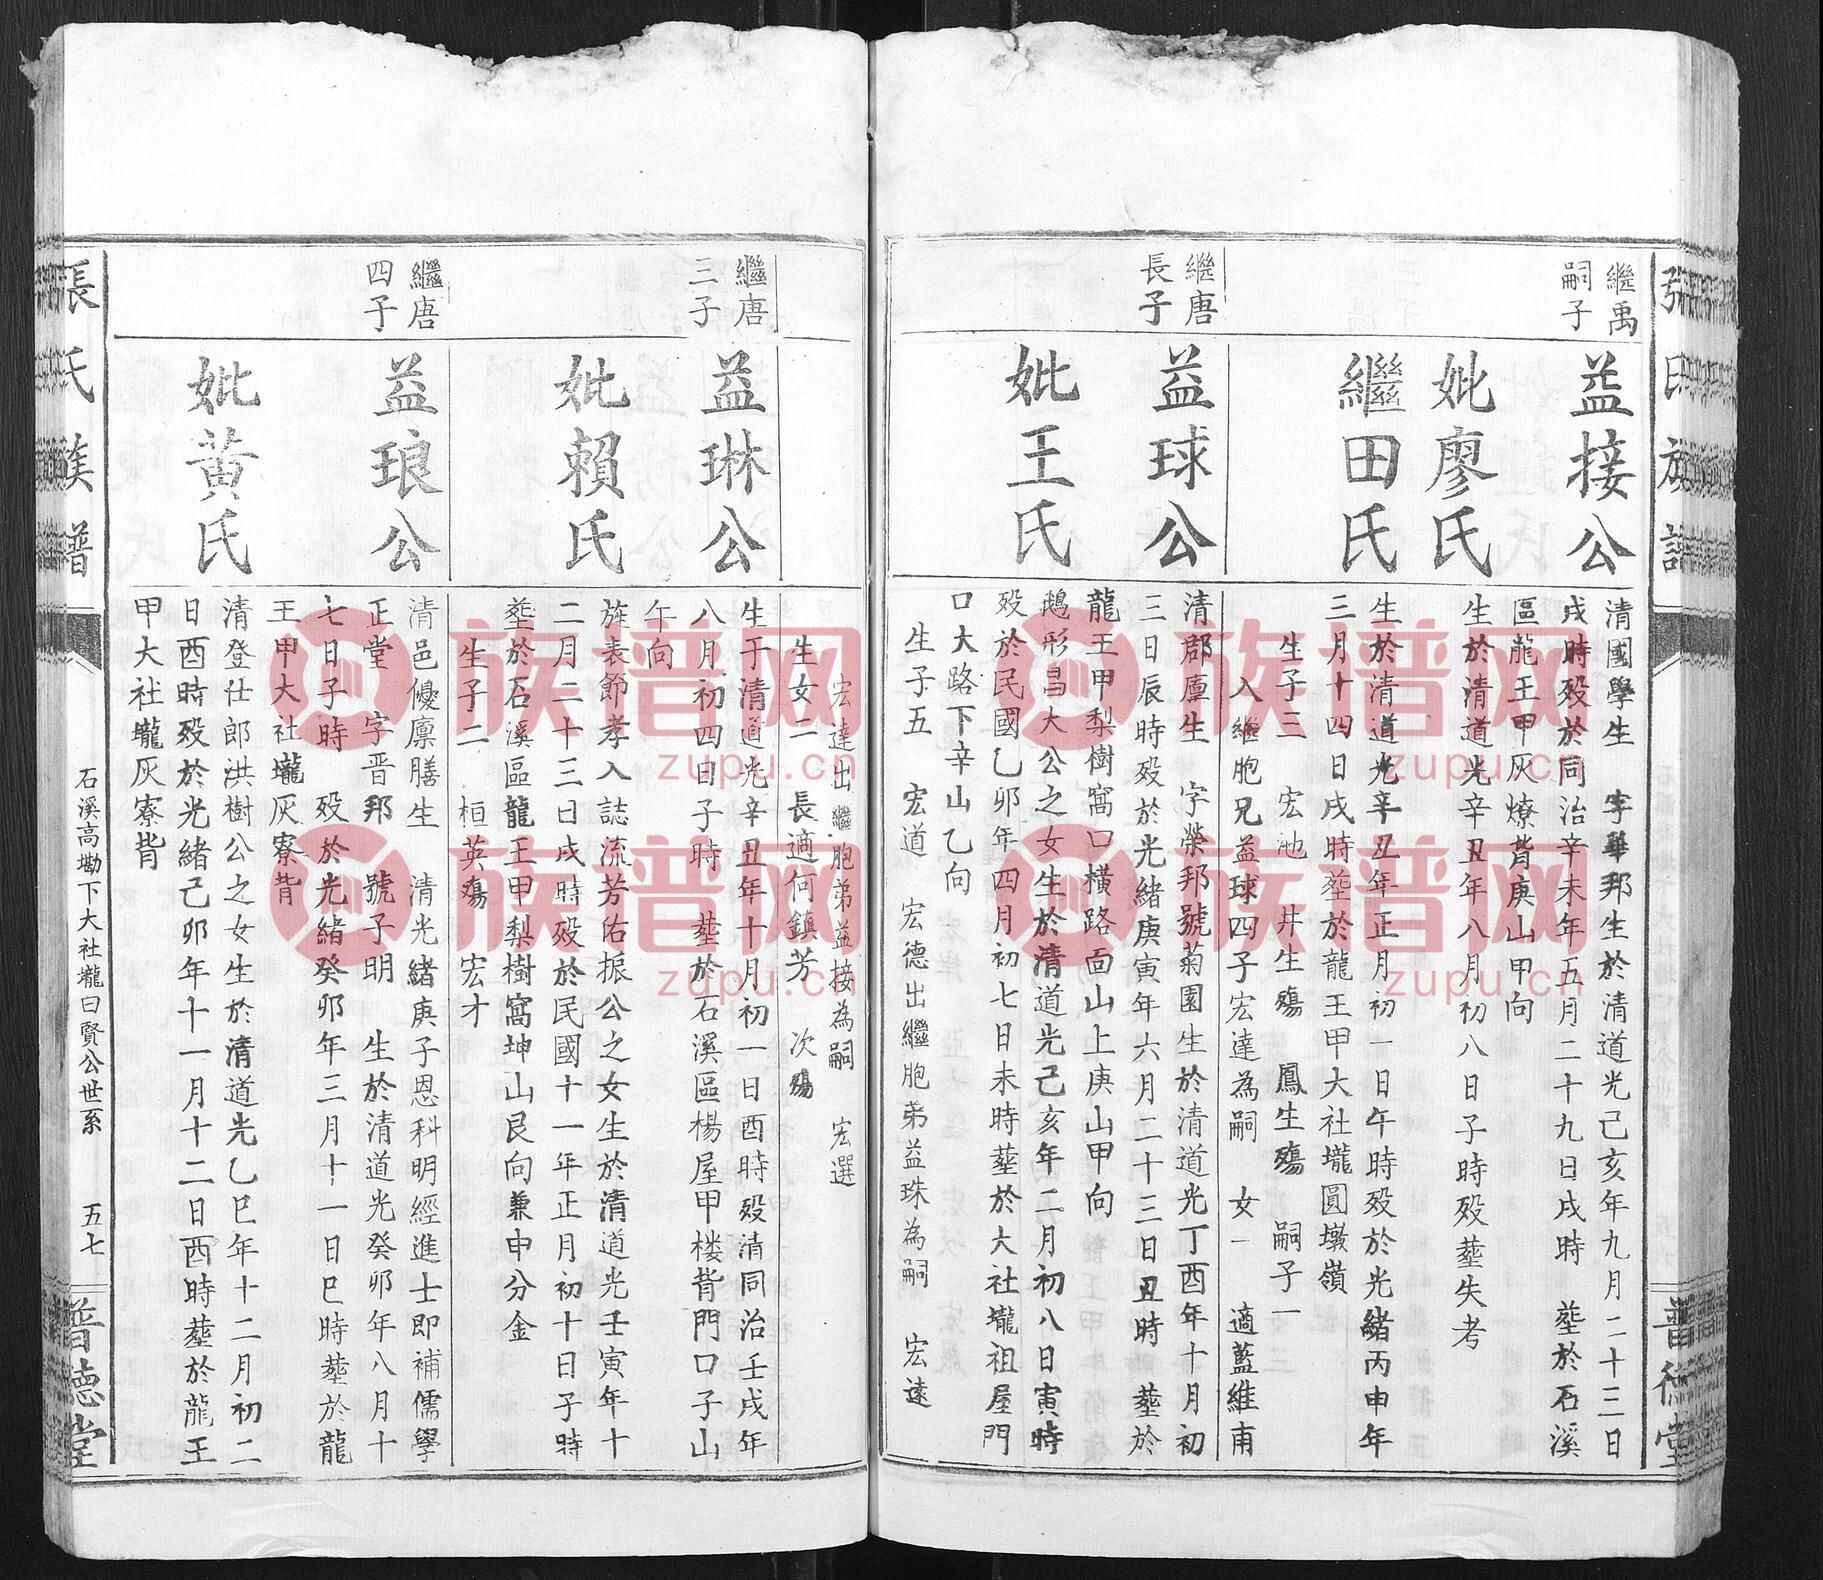 張氏族譜
普德堂
繼禹
嗣子
益接公
清國學生 字華邦生於清道光己亥年九月二十三日
戌時歿於同治辛未年五月二十九日戌時 塟於石溪
區龍王甲灰燎背庚山甲向
妣廖氏
生於清道光辛丑年八月初八日子時歿塟失考
繼田氏
生於清道光辛丑年正月初一日午時歿於光緒丙申年
三月十四日戌時塟於龍王甲大社壠圓墩嶺
生子三 宏池 井生殤 鳳生殤 嗣子一
入繼胞兄益球四子宏達為嗣 女一 適藍維甫
繼唐
長子
益球公
清郡廩生 字榮邦號菊園生於清道光丁酉年十月初
三日辰時歿於光緒庚寅年六月二十三日丑時 塟於
龍王甲梨樹窩口橫路面山上庚山甲向
妣王氏
鵝形昌大公之女生於清道光己亥年二月初八日寅時
歿於民國乙卯年四月初七日未時塟於大社壠祖屋門
口大路下辛山乙向
生子五 宏道 宏德出繼胞弟益珠為嗣 宏遠
宏達出繼胞弟益接為嗣 宏選
生女二 長適何鎮芳 次殤
繼唐
三子
益琳公
生于清道光辛丑年十月初一日酉時歿清同治壬戌年
八月初四日子時 塟於石溪區楊屋甲楼背門口子山
午向
妣賴氏
旌表節孝入誌流芳佑振公之女生於清道光壬寅年十
二月二十三日戌時歿於民國十一年正月初十日子時
塟於石溪區龍王甲梨樹窩坤山艮向兼申分金
生子二 桓英殤 宏才
繼唐
四子
益琅公
清邑優廩膳生 清光緒庚子恩科明經進士即補儒學
正堂 字晋邦 號子明 生於清道光癸卯年八月十
七日子時 歿於光緒癸卯年三月十一日巳時塟於龍
王甲大社壠灰寮背
妣黄氏
清登仕郎洪樹公之女生於清道光乙巳年十二月初二
日酉時歿於光緒己卯年十一月十二日酉時塟於龍王
甲大社壠灰寮背
張氏族譜
石溪高墈下大社壠曰賢公世系 五七
普德堂
族谱网
zupu.cn
族谱网
zupu.cn
族谱网
zupu.cn
族谱网
zupu.cn